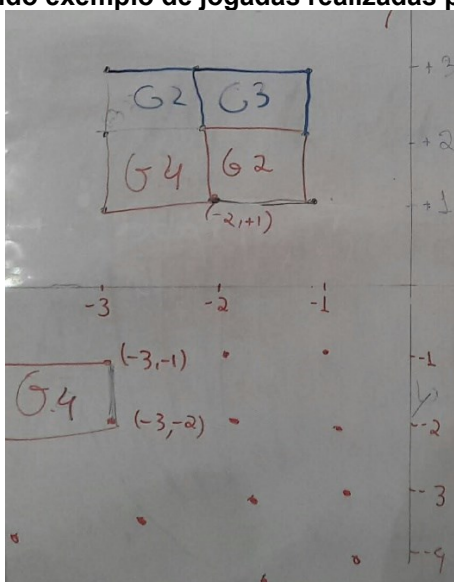 ndo exemplo de jogadas realizadas p
+3
G2 G3
+2
G4 G2
+1
(-2,+1)
-3 -2 -1
(-3,-1) -1
G.4
(-3,-2) -2
-3
-4